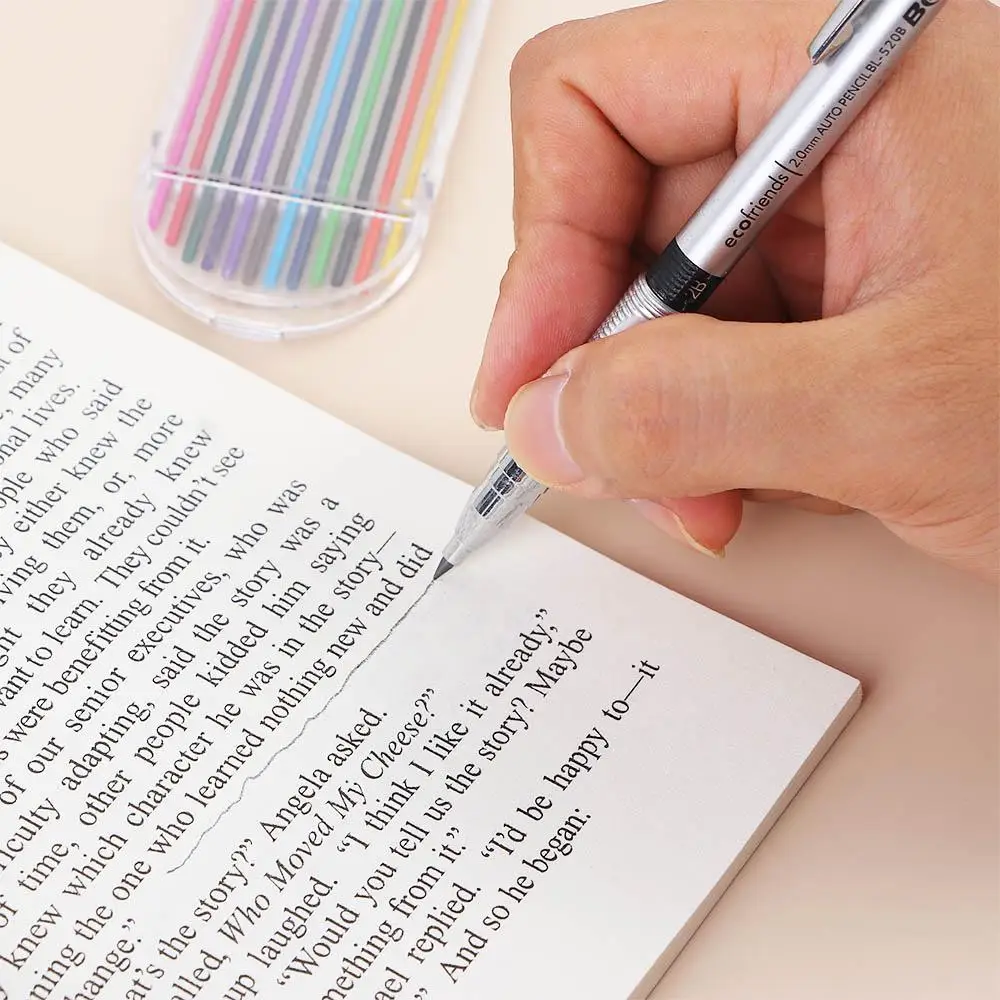 of
, many
onal lives.
ople who said
either knew the
ving them, or, more
ght they already knew
want to learn. They couldn’t see
s were benefiting from it.
of our senior executives, who was
ficulty adapting, said the story was a
of time, other people kidded him saying
knew which character he was in the story—
ning the one who learned nothing new and did
hange.”
at’s the story?” Angela asked.
alled, Who Moved My Cheese?”
up laughed. “I think I like it already,”
“Would you tell us the story? Maybe
mething from it.”
ael replied. “I’d be happy to—it
And so he began:
ecofriends | 2.0mm AUTO PENCIL BL-520B
2B